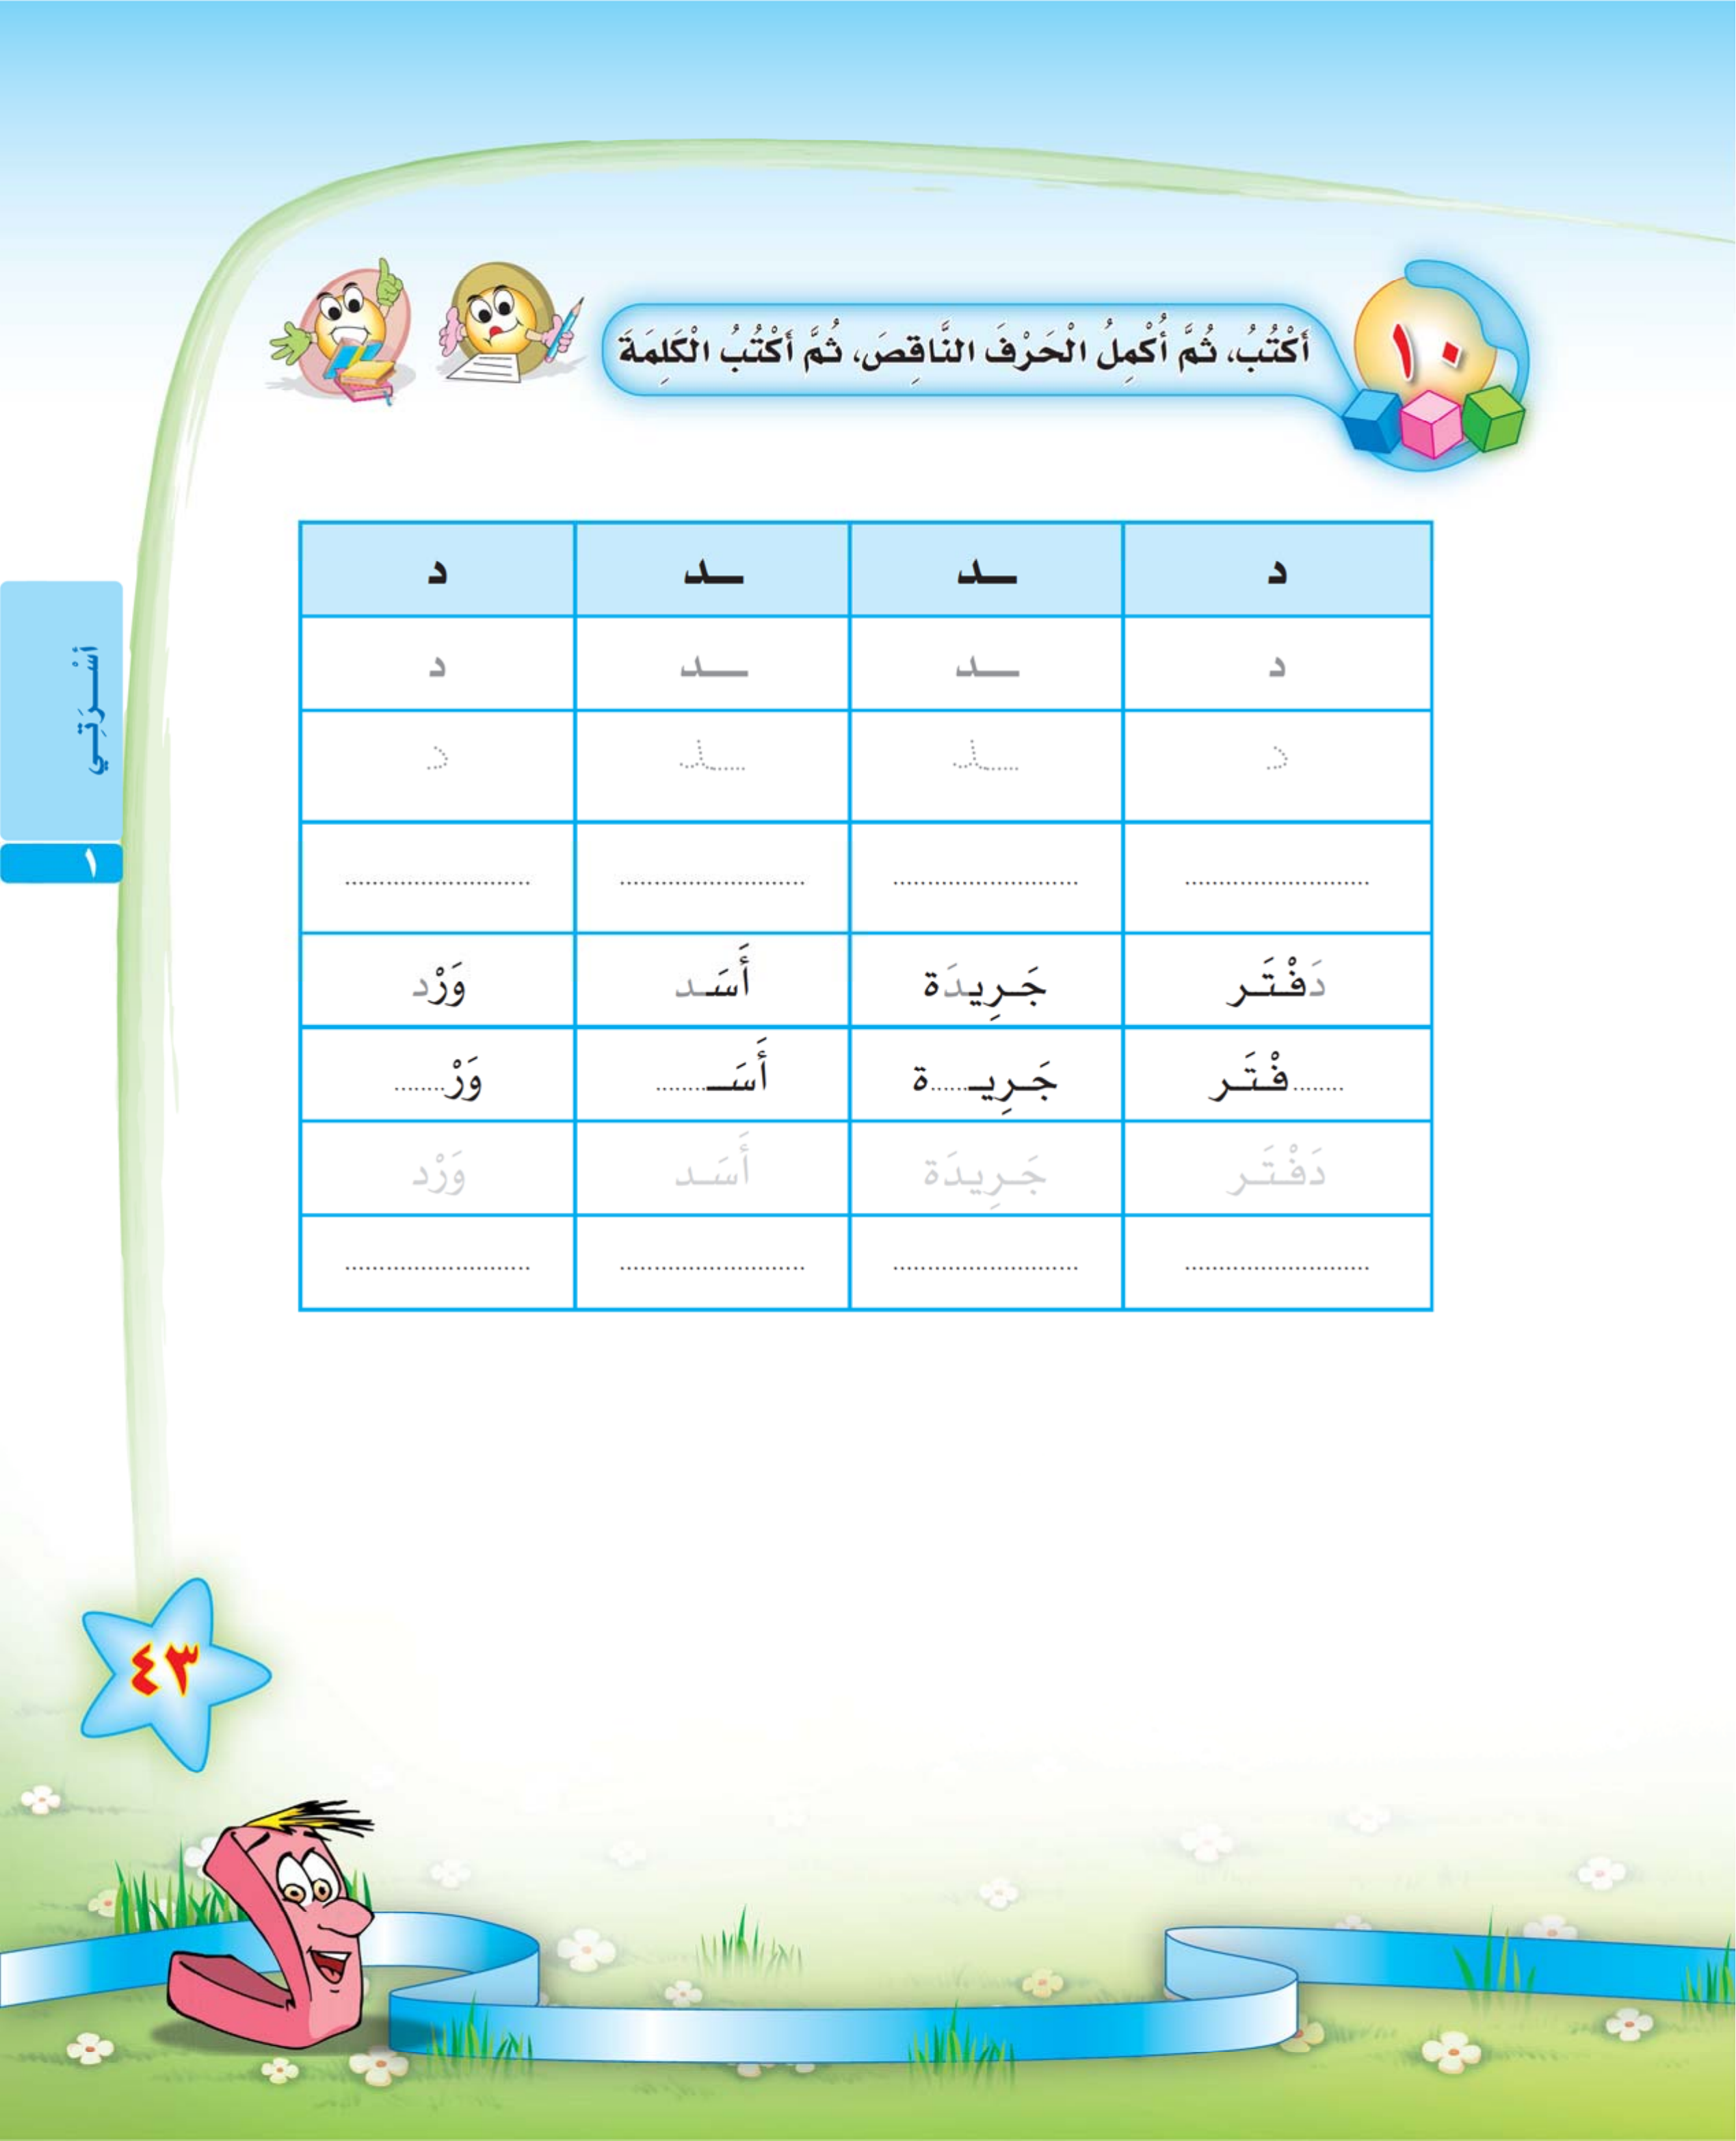 ١٠
أَكْتُبُ، ثُمَّ أُكْمِلُ الْحَرْفَ النَّاقِصَ، ثُمَّ أَكْتُبُ الْكَلِمَةَ
د ـد ـد د
د ـد ـد د
د ـد ـد د
.......................... .......................... .......................... ..........................
دَفْتَـر جَـرِيدَة أَسَـد وَرْد
........فْـتَـر جَـرِيـ......ة أَسَـ........ وَرْ........
دَفْتَـر جَـرِيدَة أَسَـد وَرْد
.......................... .......................... .......................... ..........................
أُسْـرَتِـي
١
٤٣